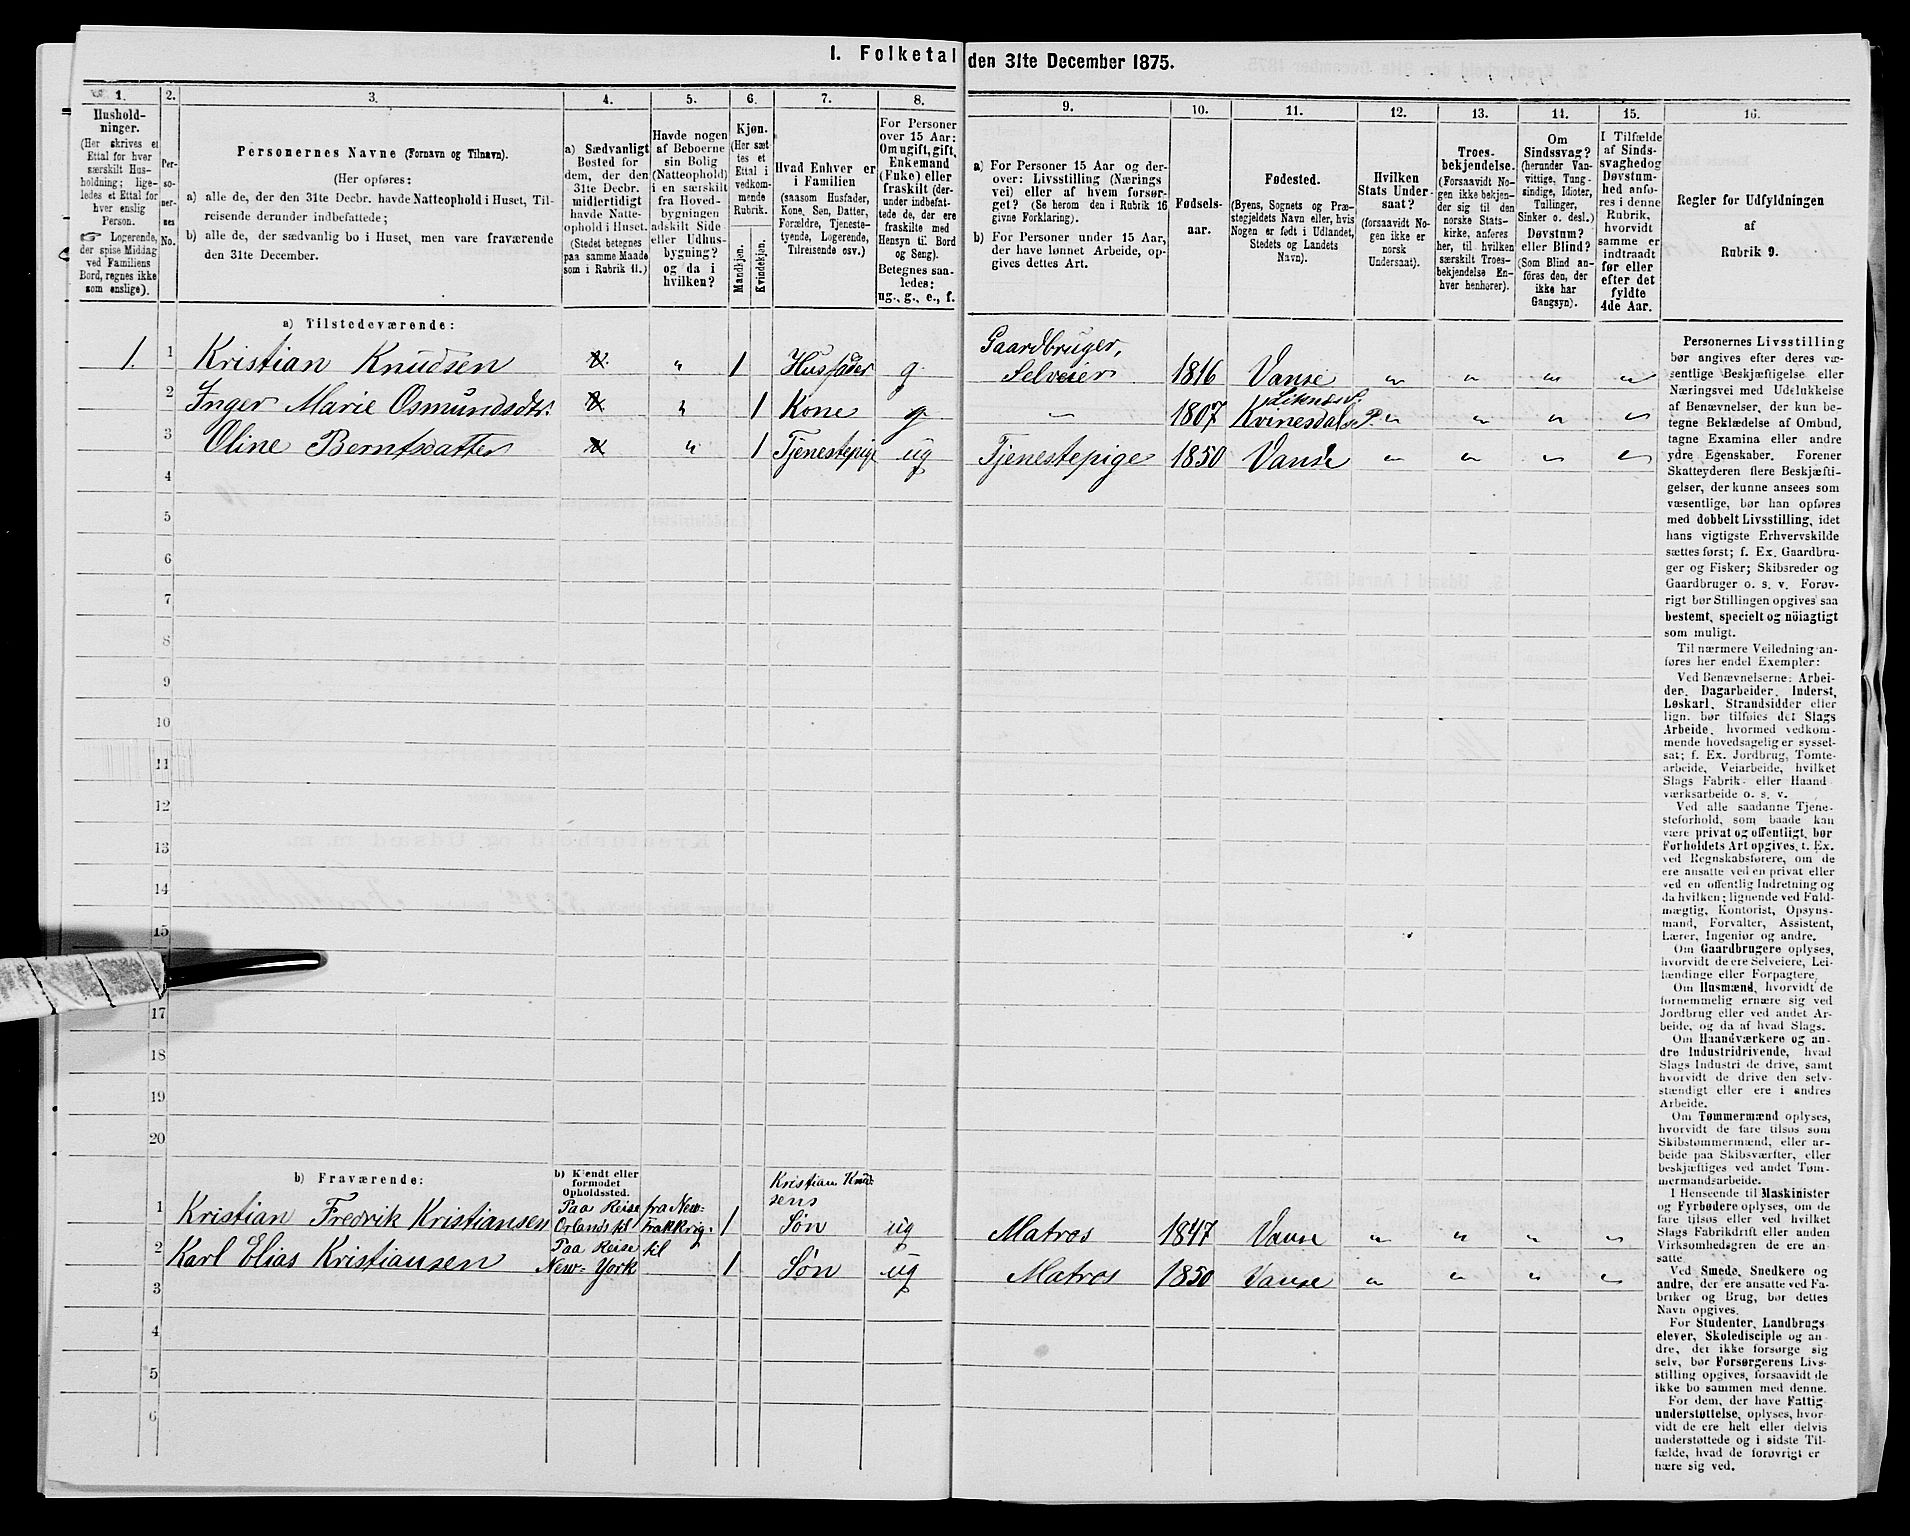 1. Folketal den 31te December 1875.
1.
2.
3.
4.
5.
6.
7.
8.
9.
10.
11.
12.
13.
14.
15.
16.
Hushold-
ninger.
(Her skrives et
Ettal for hver
særskilt Hus-
holdning; lige-
ledes et Ettal for
hver enslig
Person.
☞ Logerende,
der spise Middag
ved Familiens
Bord, regnes ikke
som enslige).
Per-
so-
ner-
nes
No.
Personernes Navne (Fornavn og Tilnavn).
(Her opføres:
a) alle de, der den 31te Decbr. havde Natteophold i Huset, Til-
reisende derunder indbefattede;
b) alle de, der sædvanlig bo i Huset, men vare fraværende
den 31te December.
a) Sædvanligt
Bosted for
dem, der den
31te Decbr.
midlertidigt
havde Natte-
ophold i Huset.
(Stedet betegnes
paa samme Maade
som i Rubrik 11.)
Havde nogen
af Beboerne
sin Bolig
(Natteophold)
i en særskilt
fra Hoved-
bygningen
adskilt Side-
eller Udhus-
bygning?
og da i
hvilken?
Kjøn.
(Her sæt-
tes et
Ettal i
vedkom-
mende
Rubrik.
Mandkjøn.
Kvindekjøn.
Hvad Enhver er
i Familien
(saasom Husfader,
Kone, Søn, Datter,
Forældre, Tjeneste-
tyende, Logerende,
Tilreisende osv.)
For Personer
over 15 Aar:
Om ugift, gift,
Enkemand
(Enke) eller
fraskilt (der-
under indbefat-
tede de, der ere
fraskilte med
Hensyn til Bord
og Seng).
Betegnes saa-
ledes:
ug., g., e., f.
a) For Personer 15 Aar og der-
over: Livsstilling (Nærings
vei) eller af hvem forsør-
get? (Se herom den i Rubrik 16
givne Forklaring).
b) For Personer under 15 Aar,
der have lønnet Arbeide, op-
gives dettes Art.
Fødsels-
aar.
Fødested.
(Byens, Sognets og Præ-
stegjeldets Navn eller, hvis
Nogen er født i Udlandet,
Stedets og Landets
Navn).
Hvilken
Stats Under-
saat?
(forsaavidt No-
gen ikke er
norsk
Undersaat).
Troes-
bekjendelse.
(Forsaavidt No-
gen ikke bekjen-
der sig til den
norske Stats-
kirke, anføres
her, til hvilken
særskilt Troes-
bekjendelse En-
hver henhører).
Om
Sindssvag?
(herunder Van-
vittige, Tung-
sindige, Idioter,
Tullinger,
Sinker o. desl.)
Døvstum?
eller Blind?
(Som Blind an-
føres den, der
ikke har
Gangsyn).
I Tilfælde
af Sinds-
svaghed og
Døvstum-
hed anfø-
res i denne
Rubrik,
hvorvidt
samme er
indtraadt
før eller
efter det
fyldte
4de Aar.
Regler for Udfyldningen
af
Rubrik 9.
a) Tilstedeværende:
1. 1 Kristian Knudsen " 1 Husfader g. Gaardbruger, Selveier 1816 Vanse " " " "
2 Inger Marie Osmundsdtr. " 1 Kone g " 1807 Kvinesdals P. " " " "
3 Oline Berntsdatter " 1 Tjenestepige ug Tjenestepige 1850 Vanse " " " "
4
5
6
7
8
9
10
11
12
13
14
15
17
18
19
20
b) Fraværende:
b) Kjendt eller
formodet
Opholdssted.
Kristian Knud-
sens
1 Kristian Fredrik Kristiansen Paa Reise fra New-
Orlands til Frakkrig. 1 Søn ug Matros 1847 Vanse " " " "
2 Karl Elias Kristiansen Paa Reise til
New-York 1 Søn ug Matros 1850 Vanse " " " "
3
4
5
6
Personernes Livsstilling
bør angives efter deres væ-
sentlige Beskjæftigelse eller
Næringsvei med Udelukkelse
af Benævnelser, der kun be-
tegne Beklædelse af Ombud,
tagne Examina eller andre
ydre Egenskaber. Forener
Skatteyderen flere Beskjæfti-
gelser, der kunne ansees som
væsentlige, bør han opføres
med dobbelt Livsstilling, idet
hans vigtigste Erhvervskilde
sættes først; f. Ex. Gaardbru-
ger og Fisker; Skibsreder og
Gaardbruger o. s. v. Forøv-
rigt bør Stillingen opgives saa
bestemt, specielt og nöiagtigt
som muligt.
Til nærmere Veiledning an-
føres her endel Exempler:
Ved Benævnelserne: Arbei-
der, Dagarbeider, Inderst,
Løskarl, Strandsidder eller
lign. bør tilføies det Slags
Arbeide, hvormed vedkom-
mende hovedsagelig er syssel-
sat; f. Ex. Jordbrug, Tomte-
arbeide, Veiarbeide, hvilket
Slags Fabrik- eller Haand-
værksarbeide o. s. v.
Ved alle saadanne Tjene-
steforhold, som baade kan
være privat og offentligt, bør
Forholdets Art opgives, f. Ex.
ved Regnskabsførere, om de
ere ansatte ved en privat eller
ved en offentlig Indretning og
da hvilken; lignende ved Fuld-
mægtig, Kontorist, Opsyns-
mand, Forvalter, Assistent,
Lærer, Ingeniør og andre.
Om Gaardbrugere oplyses,
hvorvidt de ere Selveiere, Lei-
lændinge eller Forpagtere.
Om Husmænd, hvorvidt de
fornemmelig ernære sig ved
Jordbrug eller ved andet Ar-
beide, og da af hvad Slags.
Om Haandværkere og an-
dre Industridrivende, hvad
Slags Industri de drive, samt
hvorvidt de drive den selv-
stændigt eller ere i andres
Arbeide.
Om Tømmermænd oplyses,
hvorvidt de fare tilsøs som
Skibstømmermænd, eller ar-
beide paa Skibsværfter, eller
beskjæftiges ved andet Tøm-
mermandsarbeide.
I Henseende til Maskinister
og Fyrbødere oplyses, om de
fare tilsøs eller ved hvilket
Fabrikdrift eller anden
Virksomhedsgren de ere an-
satte.
Ved Smede, Snedkere og
andre, der ere ansatte ved Fa-
briker og Brug, bør dettes
Navn opgives.
For Studenter, Landbrugs-
elever, Skoledisciple og an-
dre, det ikke forsørge sig
selv, bør Forsørgerens Livs-
stilling opgives, forsaavidt de
ikke bo sammen med denne.
For dem, der have Fattig-
understøttelse, oplyses, hvor-
vidt de ere helt eller delvis
understøttede og i sidste Til-
fælde, hvad de forøvrigt er-
nære sig ved.